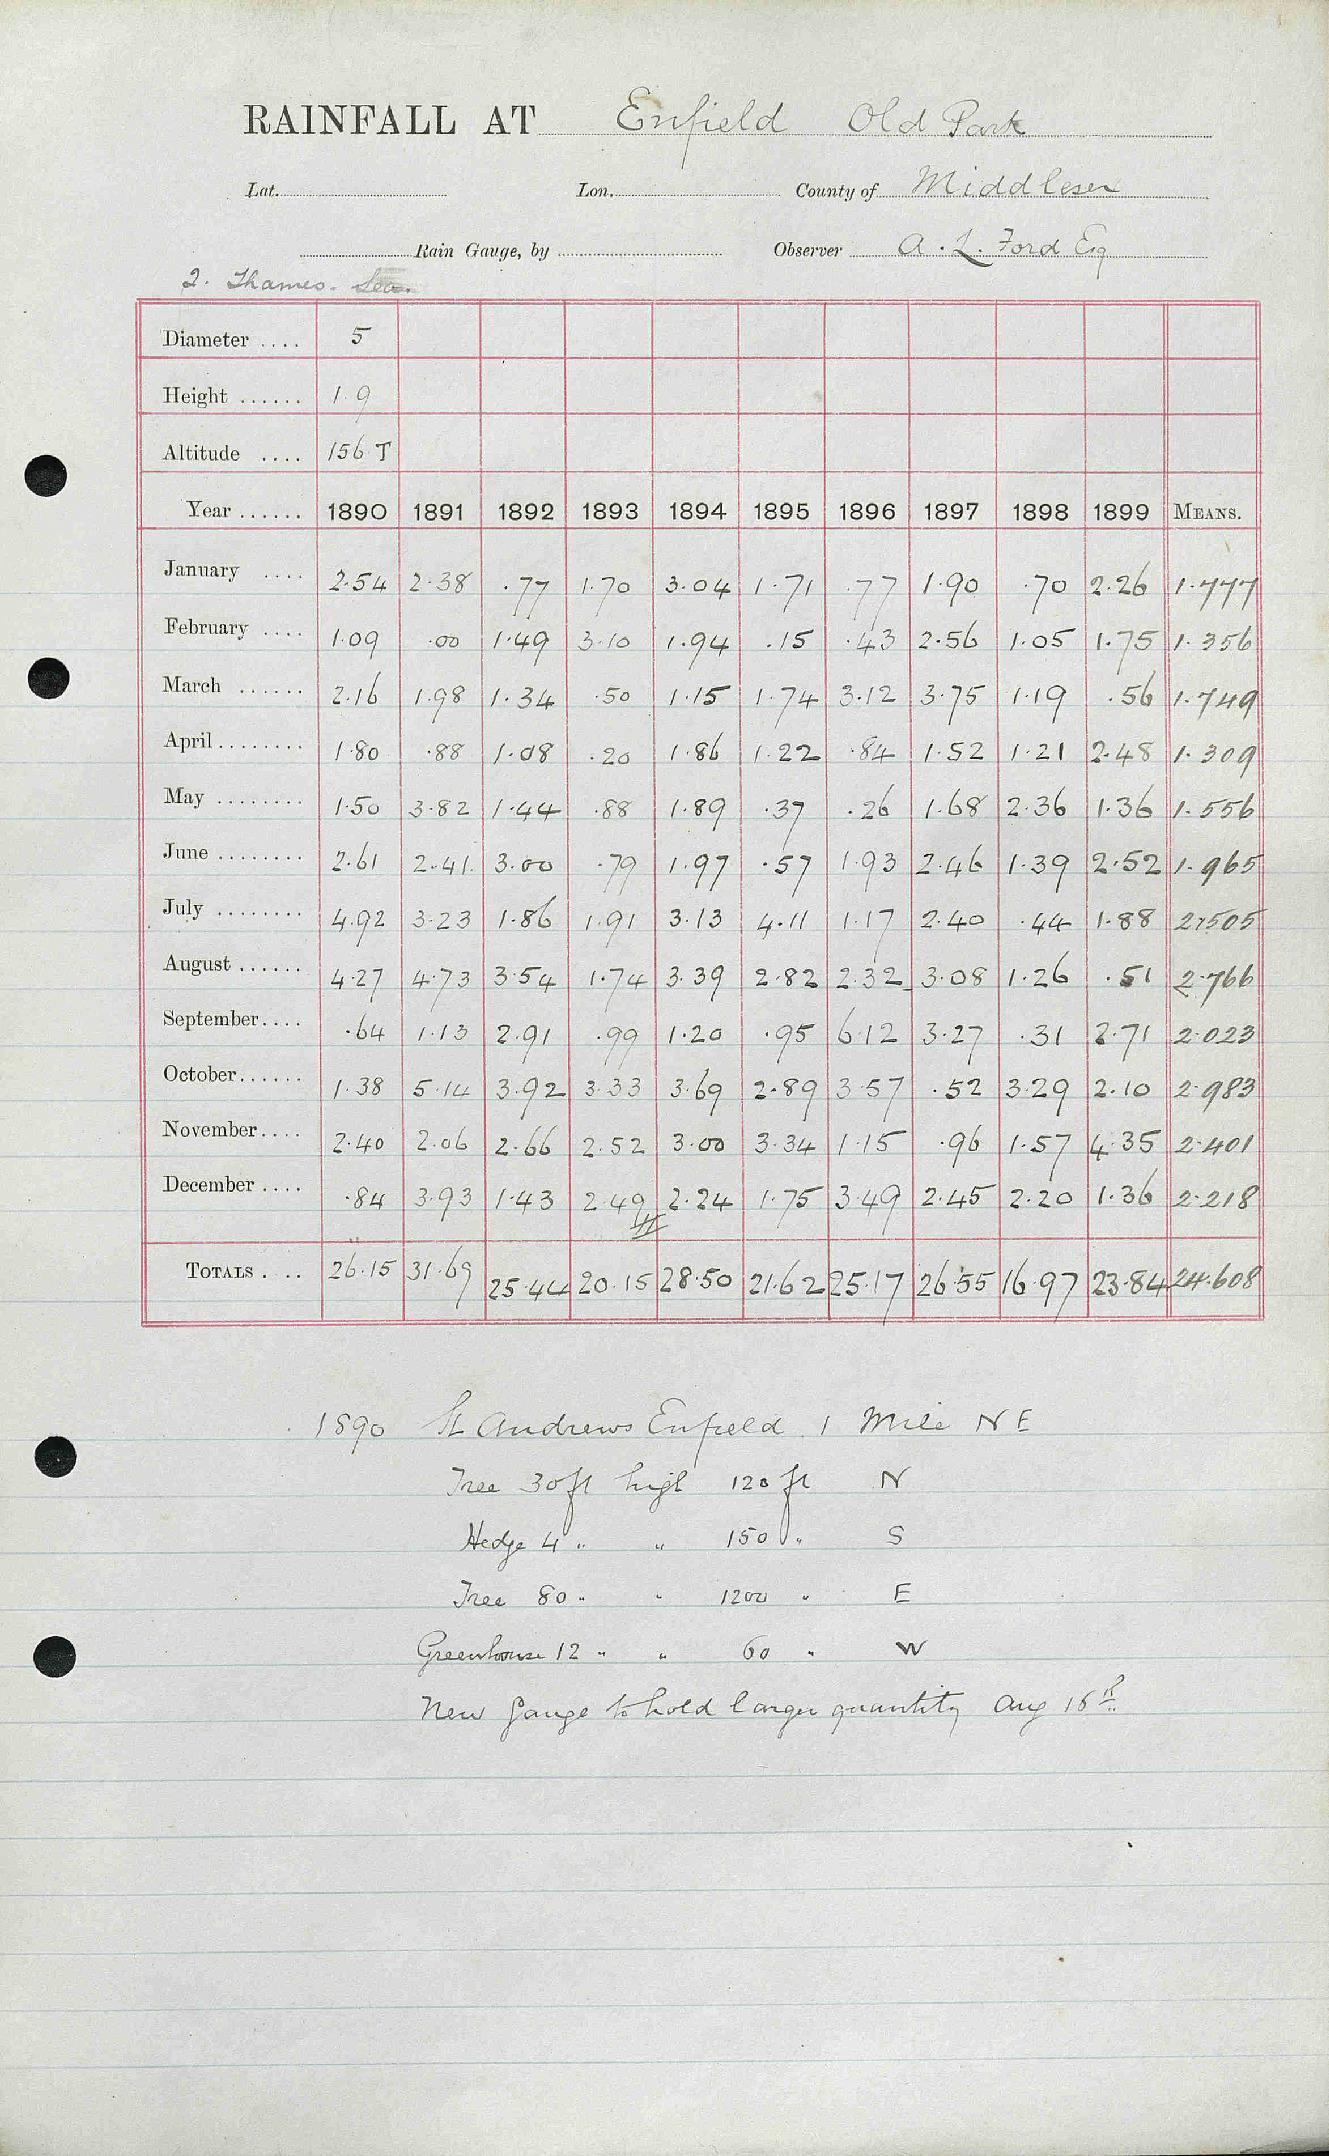 RAINFALL AT Enfield Old Park
Lat. Lon. County of Middlesex
Rain Gauge, by Observer A. L. Ford Esq
2. Thames. Lea.
Diameter .... 5
Height ...... 1.9
Altitude .... 156 T
Year ...... 1890 1891 1892 1893 1894 1895 1896 1897 1898 1899 MEANS.
January .... 2.54 2.38 .77 1.70 3.04 1.71 .77 1.90 .70 2.26 1.777
February .... 1.09 .00 1.49 3.10 1.94 .15 .43 2.56 1.05 1.75 1.356
March ...... 2.16 1.98 1.34 .50 1.15 1.74 3.12 3.75 1.19 .56 1.749
April........ 1.80 .88 1.08 .20 1.86 1.22 .84 1.52 1.21 2.48 1.309
May ........ 1.50 3.82 1.44 .88 1.89 .37 .26 1.68 2.36 1.36 1.556
June ........ 2.61 2.41 3.00 .79 1.97 .57 1.93 2.46 1.39 2.52 1.965
July ........ 4.92 3.23 1.86 1.91 3.13 4.11 1.17 2.40 .44 1.88 2.505
August ...... 4.27 4.73 3.54 1.74 3.39 2.82 2.32 3.08 1.26 .51 2.766
September.... .64 1.13 2.91 .99 1.20 .95 6.12 3.27 .31 2.71 2.023
October...... 1.38 5.14 3.92 3.33 3.69 2.89 3.57 .52 3.29 2.10 2.983
November.... 2.40 2.06 2.66 2.52 3.00 3.34 1.15 .96 1.57 4.35 2.401
December .... .84 3.93 1.43 2.49 2.24 1.75 3.49 2.45 2.20 1.36 2.218
TOTALS . .. 26.15 31.69 25.44 20.15 28.50 21.62 25.17 26.55 16.97 23.84 24.608
1890 St Andrews Enfield 1 Mile NE
Tree 30 ft high 120 ft N
Hedge 4 " " 150 " S
Tree 80 " " 1200 " E
Greenhouse 12 " " 60 " W
New Gauge to hold larger quantity Aug 16th